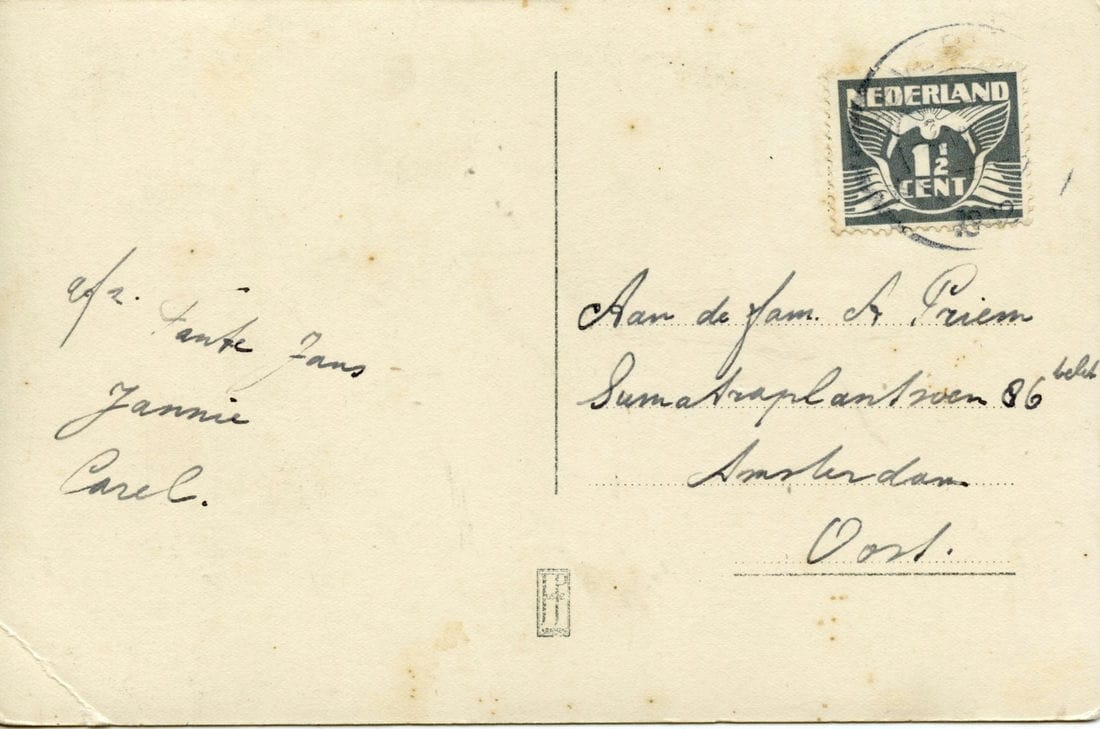 NEDERLAND
1½
CENT
afz.
Tante Jans
Jannie
Carel.
Aan de fam. A Priem
Sumatraplantsoen 86
Amsterdam
Oost.